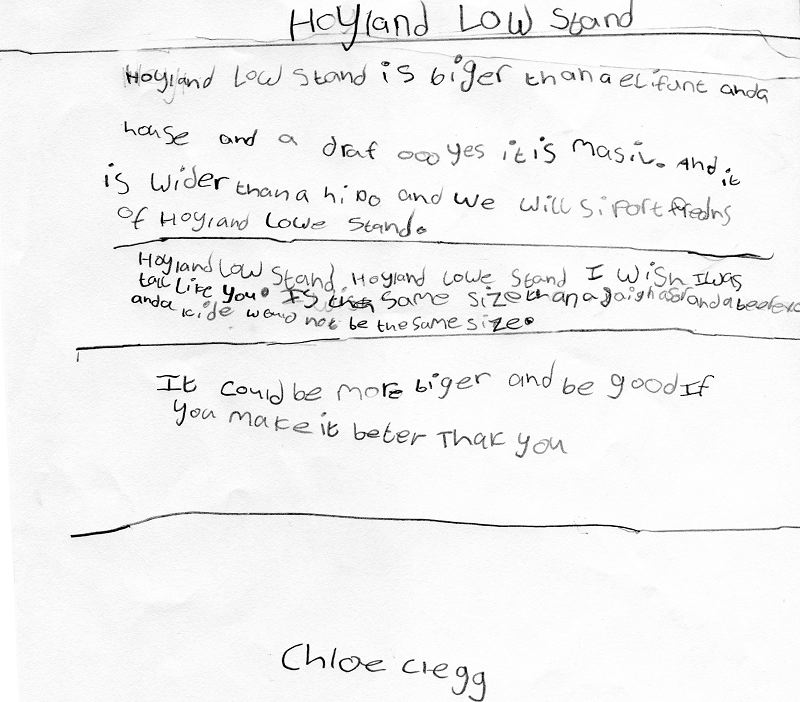 Hoyland Low Stand
Hoyland Low Stand is biger than a elifunt anda
house and a draf ooo yes it is masiv. And it
is wider than a hipo and we will siport fredns
of Hoyland Lowe Stand.
Hoyland Low Stand, Hoyland Lowe Stand I wish I was
tall like you. Is same size than a and a
anda kide would not be the same size.
It could be more biger and be good If
you make it beter Thak you
Chloe clegg